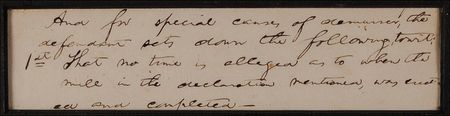 And for special causes of demurrer, the
defendant sets down the following, to wit:
1st That no time is alleged as to when the
mill in the declaration mentioned, was erect-
ed and completed —